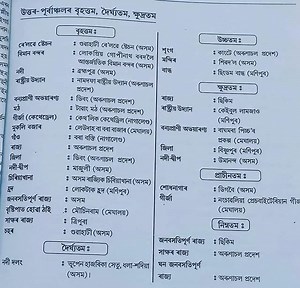 উত্তৰ-পূৰ্বাঞ্চলৰ বৃহত্তম, দৈৰ্ঘ্যতম, ক্ষুদ্ৰতম
বৃহত্তম :
ৰে'লৱে ষ্টেচন : গুৱাহাটী ৰে'লৱে ষ্টেচন (অসম)
বিমান বন্দৰ : লোকপ্ৰিয় গোপীনাথ বৰদলৈ
আন্তৰ্জাতিক বিমান বন্দৰ (অসম)
নদী : ব্ৰহ্মপুত্ৰ (অসম)
ৰাষ্ট্ৰীয় উদ্যান : নামদফা ৰাষ্ট্ৰীয় উদ্যান (অৰুণাচল
প্ৰদেশ)
বন্যপ্ৰাণী অভয়াৰণ্য : ডিবাং (অৰুণাচল প্ৰদেশ)
মঠ : টাৱাং মঠ (অৰুণাচল প্ৰদেশ)
গীৰ্জা (কেথেড্ৰেল) : কেথ'লিক কেথেড্ৰেল (নাগালেণ্ড)
মুকলি বজাৰ : (মেঘালয়)
গাঁও : (নাগালেণ্ড)
ৰাজ্য : অৰুণাচল প্ৰদেশ
জিলা : ডিবাং (অৰুণাচল প্ৰদেশ)
নদী-দ্বীপ : মাজুলী (অসম)
চিৰিয়াখানা : অসম ৰাজ্যিক চিৰিয়াখানা (অসম)
হ্ৰদ : লোকটাক হ্ৰদ (মণিপুৰ)
জনবসতিপূৰ্ণ ৰাজ্য : অসম
বৃষ্টিপাত হোৱা ঠাই : মৌচিনৰাম (মেঘালয়)
সাক্ষৰ ৰাজ্য : ত্ৰিপুৰা
চহৰ : গুৱাহাটী (অসম)
দৈৰ্ঘ্যতম :
নদী দলং : ভূপেন হাজৰিকা সেতু, ধলা-শদিয়া
(অসম)।
উচ্চতম :
শৃংগ : কাংটো (অৰুণাচল প্ৰদেশ)
মন্দিৰ : শিৱদ'ল (অসম)
বান্ধ : (মণিপুৰ)
ক্ষুদ্ৰতম :
ৰাজ্য : ছিকিম
ৰাষ্ট্ৰীয় উদ্যান : কেইবুল লামজাও
(মণিপুৰ)
বন্যপ্ৰাণী অভয়াৰণ্য :
(মেঘালয়)
জিলা : বিষ্ণুপুৰ (মণিপুৰ)
নদী-দ্বীপ : উমানন্দ (অসম)
প্ৰাচীনতম :
শোধনাগাৰ : ডিগবৈ (অসম)
গীৰ্জা : প্ৰেচবাইটেৰিয়ান গীৰ্জা
(মেঘালয়)
নিম্নতম :
জনবসতিপূৰ্ণ ৰাজ্য : ছিকিম
সাক্ষৰ ৰাজ্য : অৰুণাচল প্ৰদেশ
ঘন জনবসতিপূৰ্ণ
ৰাজ্য : অৰুণাচল প্ৰদেশ